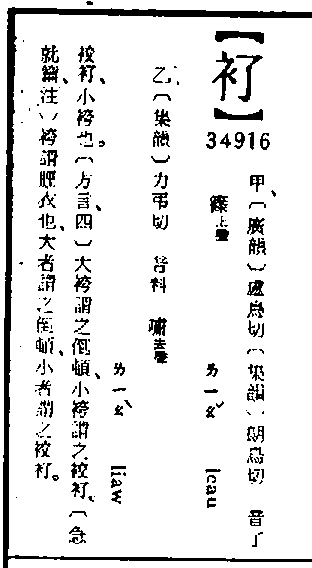 【⿰衤了】
34916
甲、〔廣韻〕盧鳥切〔集韻〕朗鳥切 音了
篠上聲 ㄌㄧㄠˇ leau
乙、〔集韻〕力弔切 音料 嘯去聲
ㄌㄧㄠˋ liaw
⿰衤交⿰衤了、小袴也。〔方言、四〕大袴謂之倒頓、小袴謂之⿰衤交⿰衤了。〔急
就篇、注〕袴謂脛衣也、大者謂之倒頓、小者謂之⿰衤交⿰衤了。